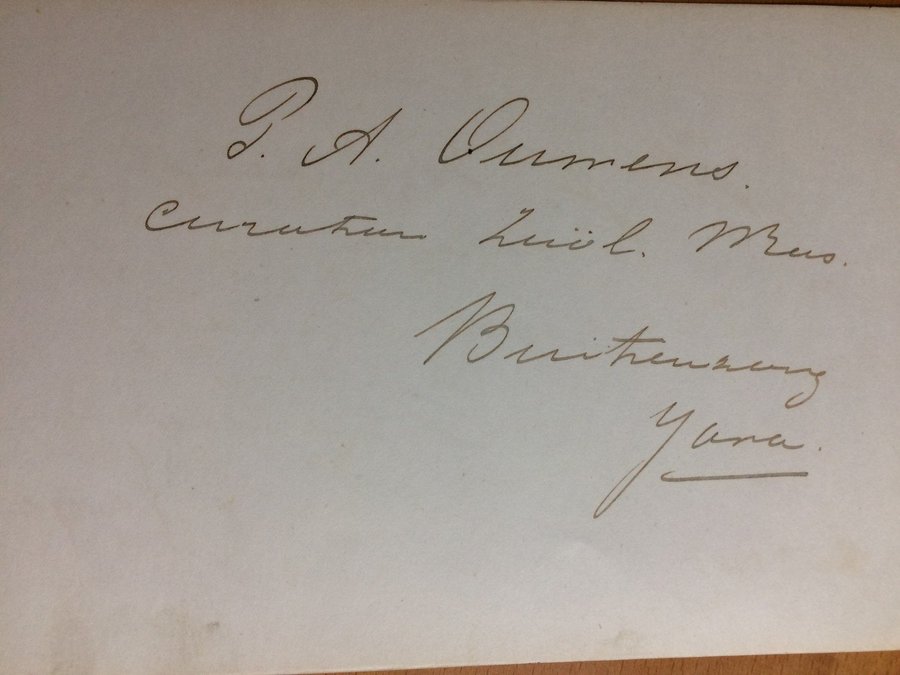 P. A. Ouwens.
Curator Zoöl. Mus.
Buitenzorg
Java.